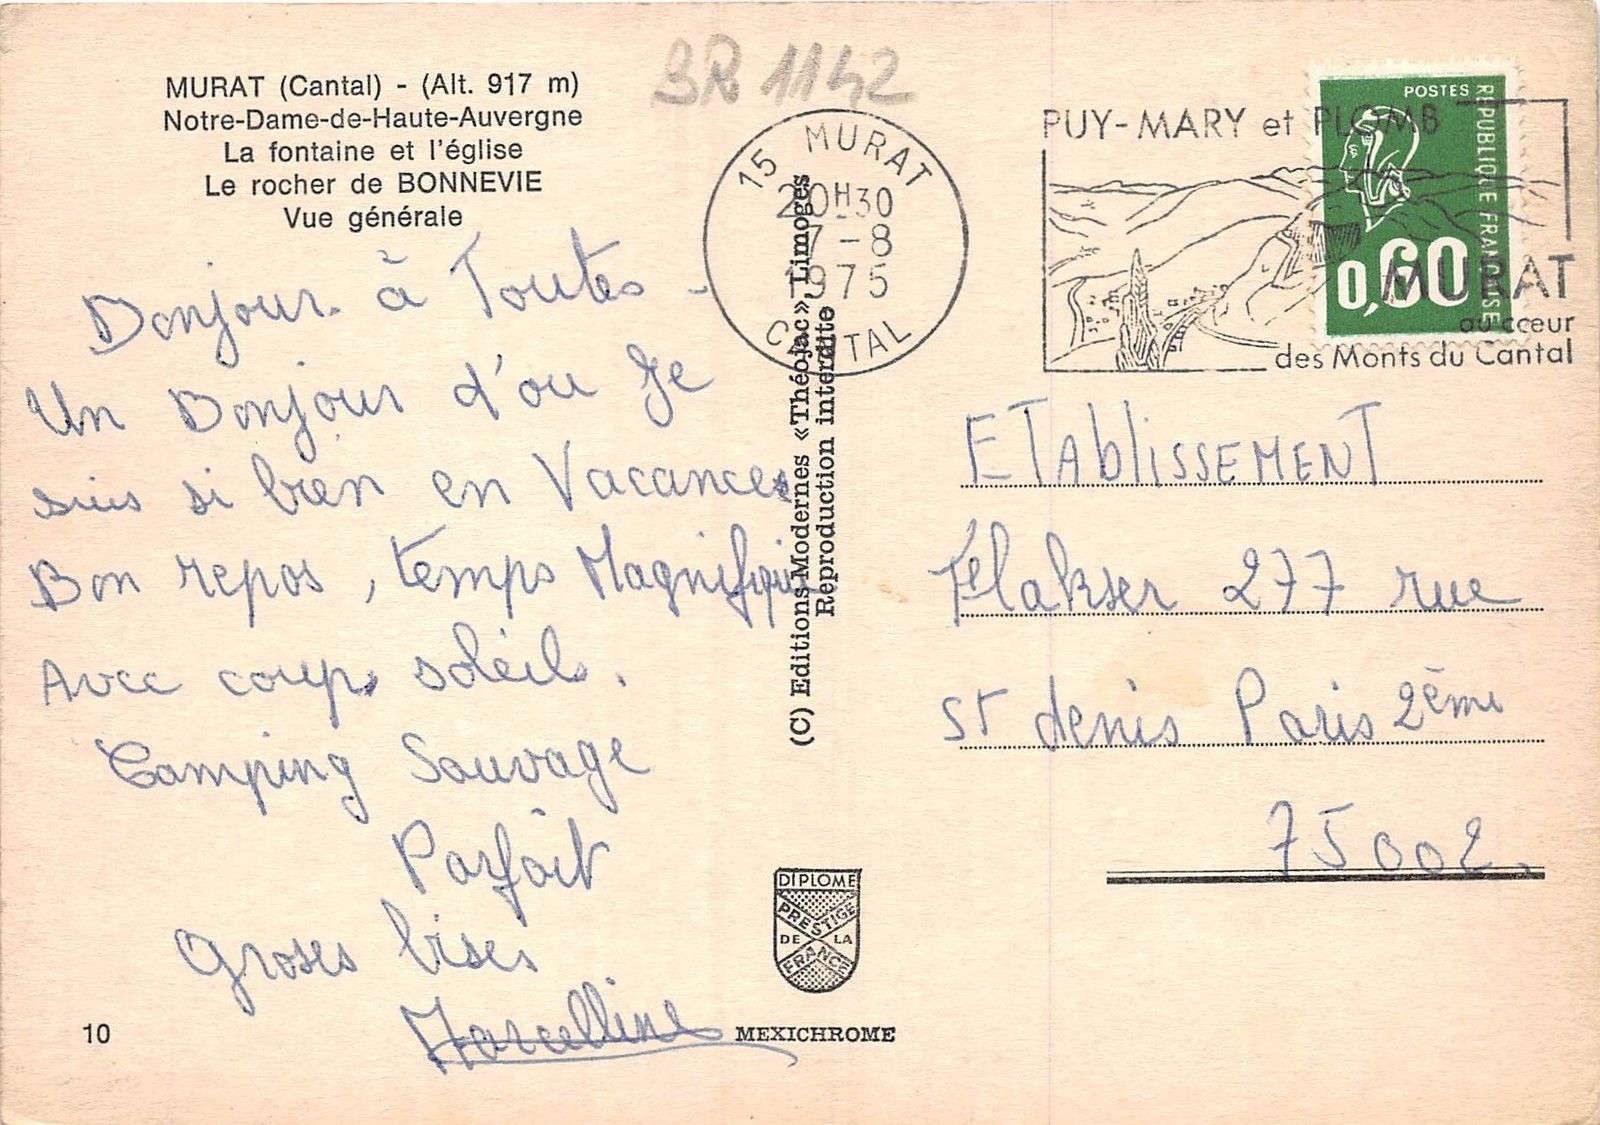 BR 1142
MURAT (Cantal) - (Alt. 917 m)
Notre-Dame-de-Haute-Auvergne
La fontaine et l'église
Le rocher de BONNEVIE
Vue générale
Bonjour à Toutes -
Un Bonjour d'ou Je
suis si bien en Vacances
Bon repos, temps Magnifique
Avec coups soleils.
Camping Sauvage
Parfait
Groses bises
Marcelline
10
15 MURAT
20H30
7-8
1975
CANTAL
(C) Editions Modernes «Théojac», Limoges
Reproduction interdite
DIPLOME
PRESTIGE
DE LA
FRANCE
MEXICHROME
PUY-MARY et PLOMB
MURAT
au cœur
des Monts du Cantal
POSTES
REPUBLIQUE FRANÇAISE
0,60
ETAblissEMENT
Flakser 277 rue
St denis Paris 2ème
75002.